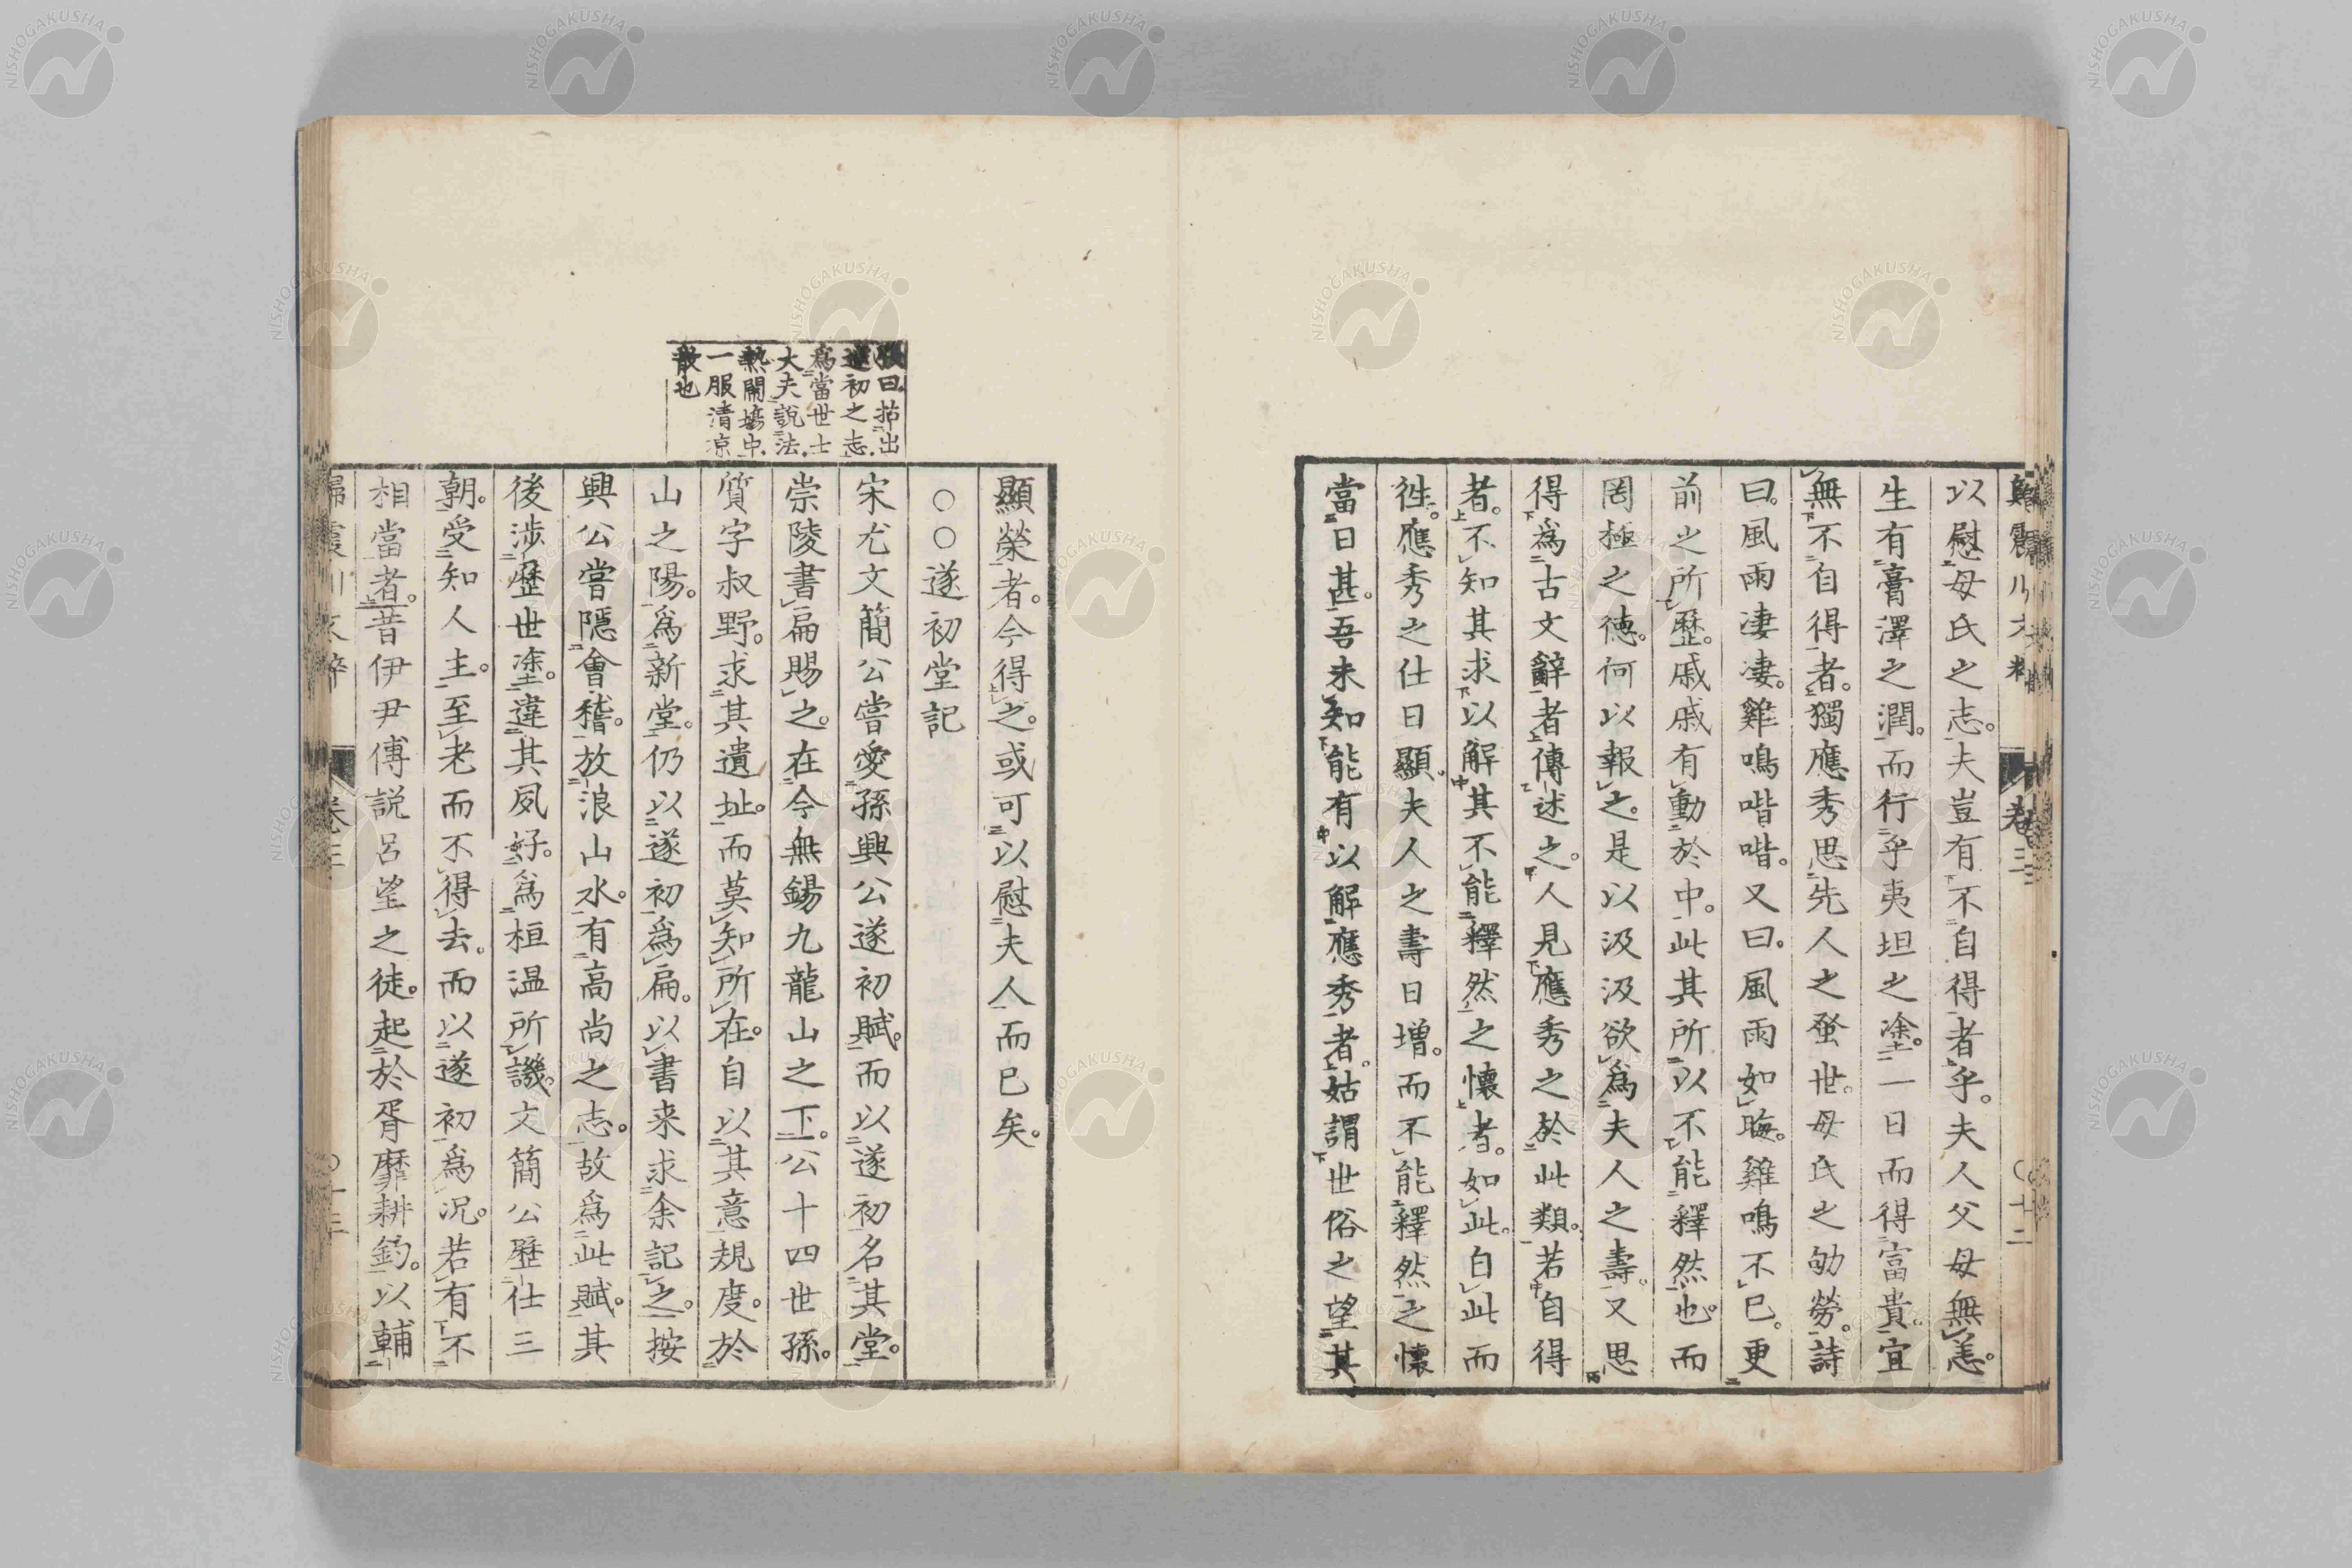 以慰母氏之志。夫豈有不自得者乎。夫人父母無恙。
生有膏澤之潤。而行乎夷坦之塗。一日而得富貴。宜
無不自得者。獨應秀思先人之蚤世。母氏之劬勞。詩
曰。風雨淒淒。雞鳴喈喈。又曰。風雨如晦。雞鳴不已。更
前之所歷。戚戚有動於中。此其所以不能釋然也。而
罔極之德。何以報之。是以汲汲欲爲夫人之壽。又思
得爲古文辭者傳述之。人見應秀之於此類。若自得
者。不知其求以解其不能釋然之懷者。如此。自此而
徃。應秀之仕日顯。夫人之壽日增。而不能釋然之懷
當日甚。吾未知能有以解應秀者。姑謂世俗之望其
顯榮者。今得之。或可以慰夫人而已矣。
○○遂初堂記
宋尤文簡公嘗愛孫興公遂初賦。而以遂初名其堂。
崇陵書扁賜之。在今無錫九龍山之下。公十四世孫。
質字叔野。求其遺址。而莫知所在。自以其意規度。於
山之陽。爲新堂。仍以遂初爲扁。以書来求余記之。按
興公嘗隱會稽。放浪山水。有高尚之志。故爲此賦。其
後涉歷世塗。違其夙好。爲桓温所譏。文簡公歷仕三
朝。受知人主。至老而不得去。而以遂初爲况。若有不
相當者。昔伊尹傅説呂望之徒。起於胥靡耕釣。以輔
張曰。拈出
遂初之志。
爲當世士
大夫説法。
熱閙塲中。
一服清凉
散也
卷三
○十二
NISHOGAKUSHA